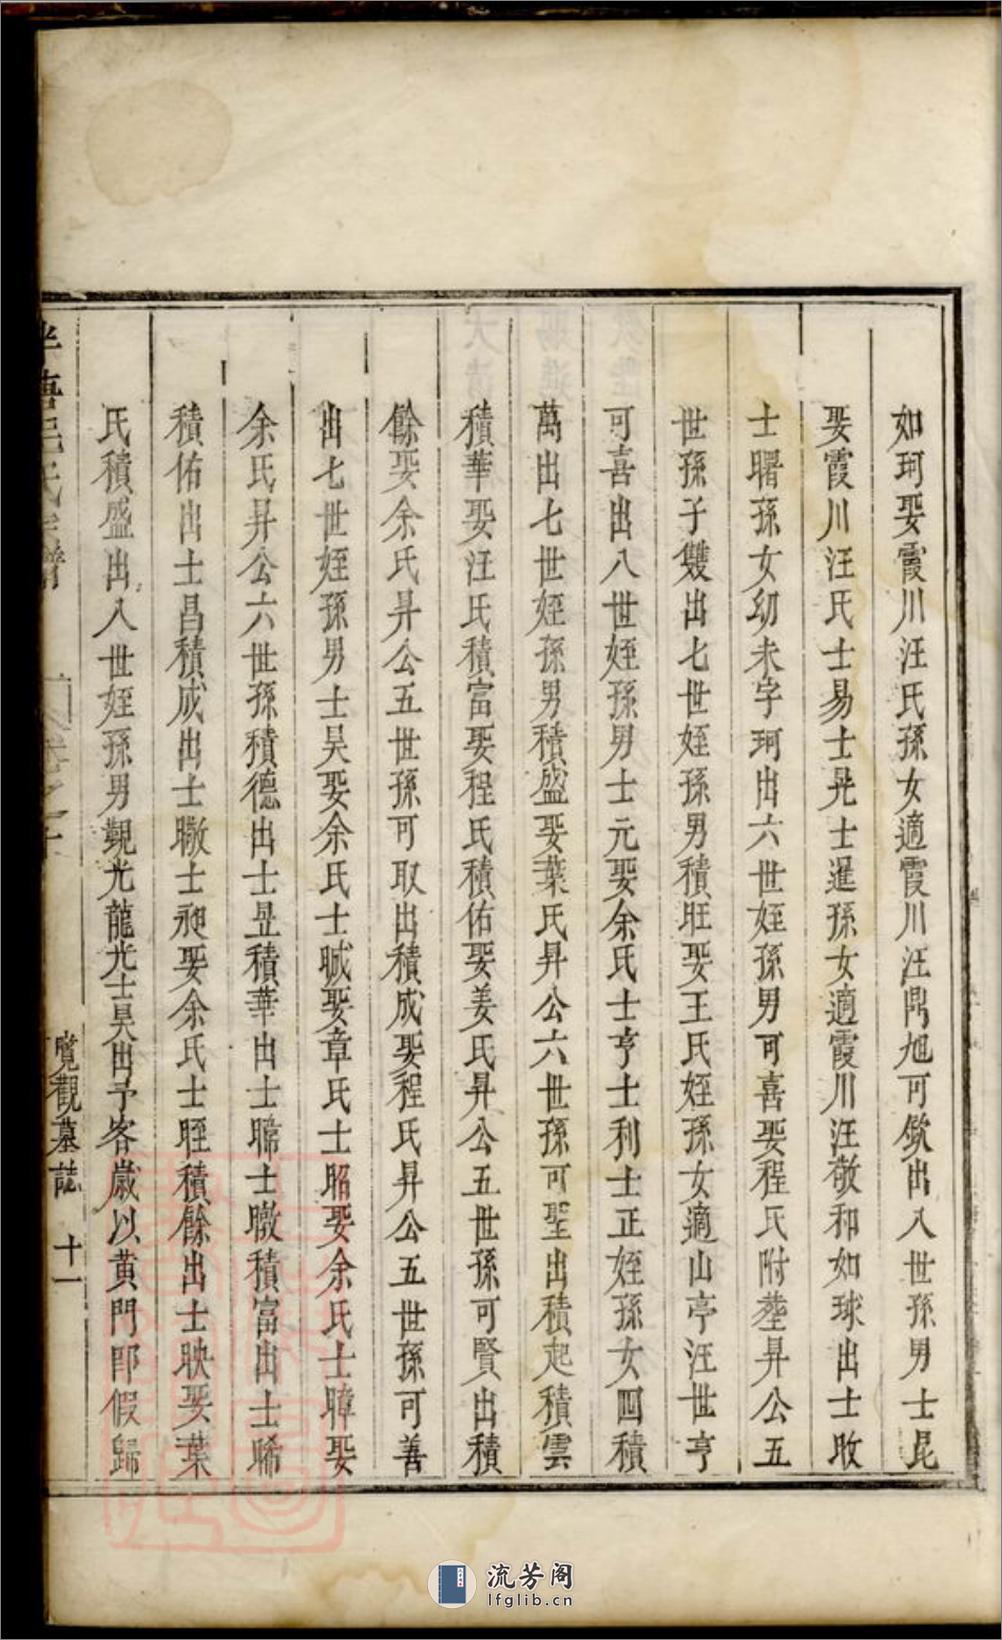 如珂娶霞川汪氏孫女適霞川汪鼎旭可欽出八世孫男士昆
娶霞川汪氏士易士晃士暹孫女適霞川汪敬和如球出士收
士曙孫女幼未字珂出六世姪孫男可喜娶程氏附塟昇公五
世孫子雙出七世姪孫男積旺娶王氏姪孫女適山亭汪世亨
可喜出八世姪孫男士元娶余氏士亨士利士正姪孫女四積
萬出七世姪孫男積盛娶葉氏昇公六世孫可聖出積起積雲
積華娶汪氏積富娶程氏積佑娶姜氏昇公五世孫可賢出積
餘娶余氏昇公五世孫可取出積成娶程氏昇公五世孫可善
出七世姪孫男士昊娶余氏士晠娶章氏士昭娶余氏士暲娶
余氏昇公六世孫積德出士昱積華出士士暾積富出士晞
積佑出士昌積成出士暾士昶娶余氏士晊積餘出士映娶葉
氏積盛出八世姪孫男觀光龍光士昊出予客歲以黃門郎假歸
氏宗譜
卷之十
覽觀墓誌 十一
流芳阁
lfglib.cn